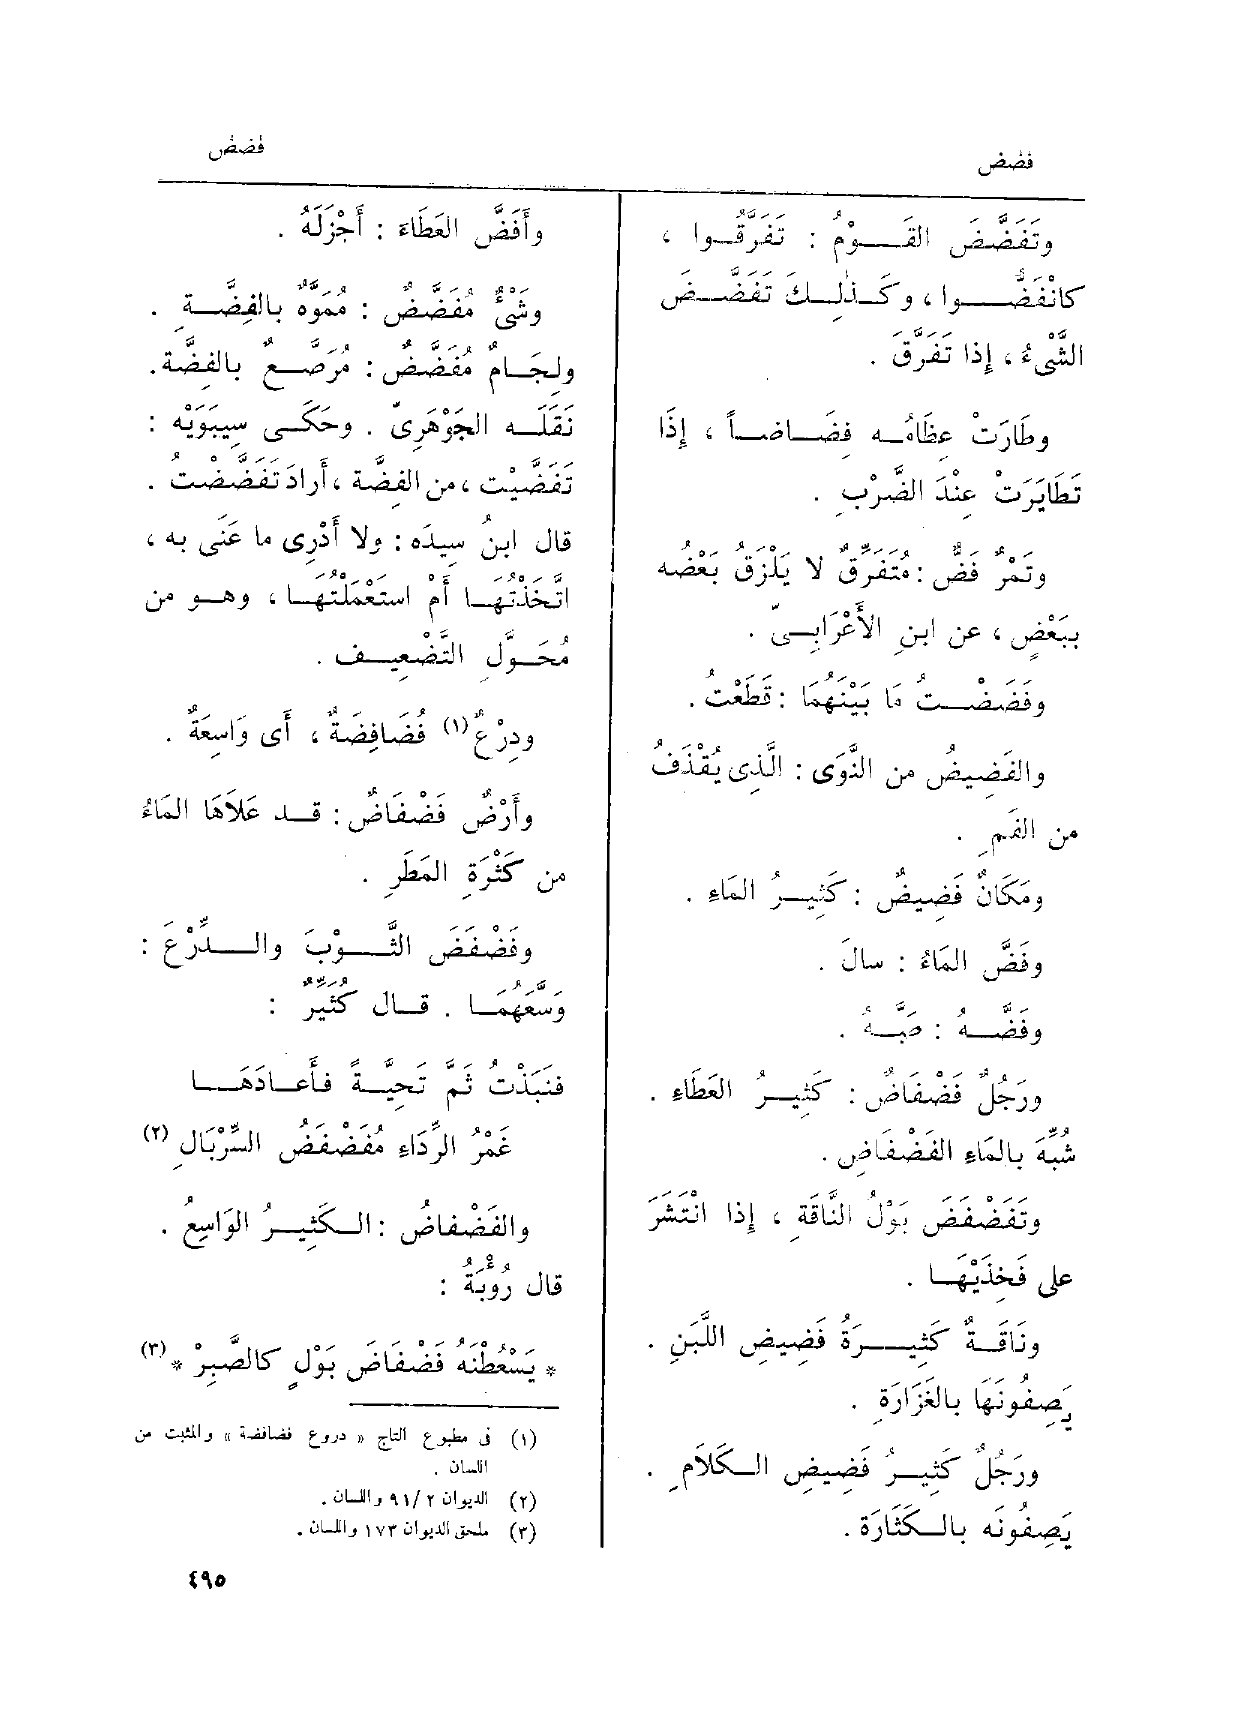 فضض
فضض
وتَفَضَّضَ القَـوْمُ : تَفَرَّقُـوا ،
كانْفَضُّـوا ، وكَـذٰلِـكَ تَفَضَّـضَ
الشَّىْءُ ، إِذا تَفَرَّقَ .
وطَارَتْ عِظَامُـه فِضَـاضـاً ، إِذَا
تَطَايَرَتْ عِنْدَ الضَّرْبِ .
وتَمْرٌ فَضٌّ : مُتَفَرِّقٌ لا يَلْزَقُ بَعْضُه
بِبَعْضٍ ، عن ابنِ الأَعْرَابِـىّ .
وفَضَضْـتُ مَا بَيْنَهُمَا : قَطَعْتُ .
والفَضِيضُ من النَّوَى : الَّذِى يُقْذَفُ
من الفَمِ .
ومَكَانٌ فَضِيضٌ : كَثِيـرُ المَاءِ .
وفَضَّ المَاءُ : سالَ .
وفَضَّـهُ : صَبَّـهُ .
ورَجُلٌ فَضْفَاضٌ : كَثِيـرُ العَطَاءِ .
شُبِّهَ بالمَاءِ الفَضْفَاضِ .
وتَفَضْفَضَ بَوْلُ النَّاقَةِ ، إِذا انْتَشَرَ
على فَخِذَيْهَـا .
ونَاقَـةٌ كَثِيـرَةُ فَضِيضِ اللَّبَنِ .
يَصِفُونَهَا بالغَزَارَةِ .
ورَجُلٌ كَثِيـرُ فَضِيضِ الـكَلَامِ .
يَصِفُونَه بالـكَثَارَة .
وأَفَضَّ العَطَاءَ : أَجْزَلَهُ .
وشَىْءٌ مُفَضَّضٌ : مُمَوَّهٌ بالفِضَّـةِ .
ولِجَـامٌ مُفَضَّضٌ : مُرَصَّـعٌ بالفِضَّة .
نَقَلَـه الجَوْهَرِىّ . وحَكَـى سِيبَوَيْه :
تَفَضَّيْت ، من الفِضَّة ، أَرادَ تَفَضَّضْتُ .
قال ابنُ سِيدَه : ولا أَدْرِى ما عَنَى به ،
اتَّخَذْتُهَـا أَم اسْتَعْمَلْتُهَـا ، وهـو من
مُحَـوَّلِ التَّضْعِيـف .
ودِرْعٌ (١) فُضَافِضَةٌ ، أَى وَاسِعَةٌ .
وأَرْضٌ فَضْفَاضٌ : قـد عَلَاهَا المَاءُ
من كَثْرَةِ المَطَرِ .
وفَضْفَضَ الثَّـوْبَ والـدِّرْعَ :
وَسَّعَهُمَـا . قـال كُثَيِّرٌ :
فنَبَذْتُ ثَمَّ تَحِيَّـةً فأَعـادَهَـا
غَمْرُ الرِّدَاءِ مُفَضْفَضُ السِّرْبَالِ (٢)
والفَضْفاضُ : الـكَثِيـرُ الوَاسِعُ .
قال رُؤْبَةُ :
* يَسْعُطْنَه فَضْفَاضَ بَوْلٍ كالصَّبِرْ * (٣)
(١) فى مطبوع التاج « دروع فضافضة » والمثبت من
اللسان .
(٢) الديوان ٢ /٩١ واللسان .
(٣) ملحق الديوان ١٧٣ واللسان .
٤٩٥